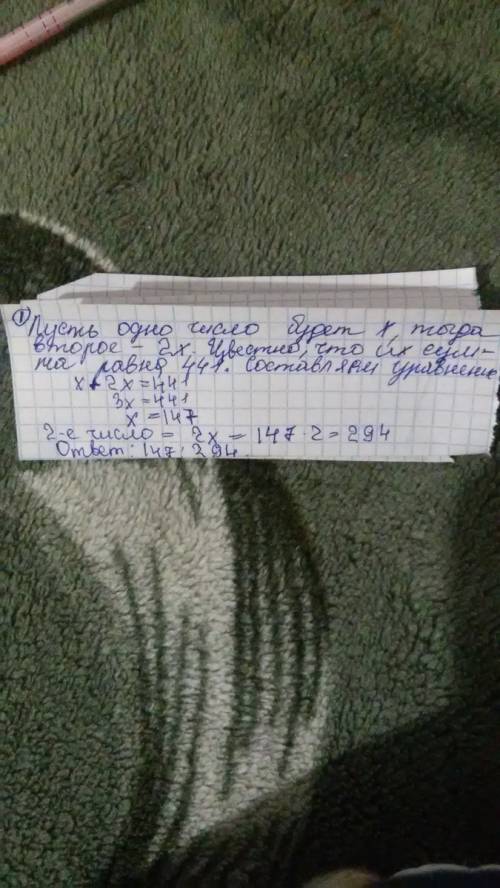 ① Пусть одно число будет x, тогда
второе - 2x. Цвестно, что их сум-
ма равна 441. Составляем уравнение
x + 2x = 441
3x = 441
x = 147
2-е число = 2x = 147 · 2 = 294
Ответ: 147; 294.